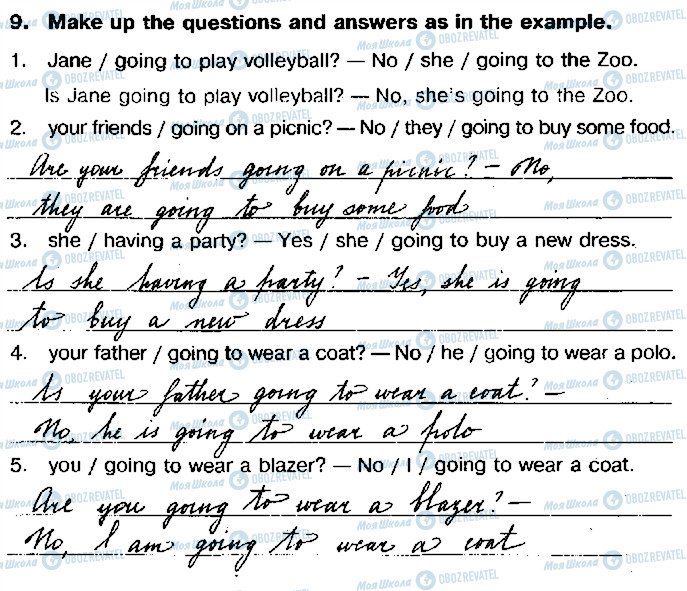 9. Make up the questions and answers as in the example.
1. Jane / going to play volleyball? — No / she / going to the Zoo.
Is Jane going to play volleyball? — No, she's going to the Zoo.
2. your friends / going on a picnic? — No / they / going to buy some food.
Are your friends going on a picnic? — No,
they are going to buy some food
3. she / having a party? — Yes / she / going to buy a new dress.
Is she having a party? — Yes, she is going
to buy a new dress
4. your father / going to wear a coat? — No / he / going to wear a polo.
Is your father going to wear a coat? —
No, he is going to wear a polo
5. you / going to wear a blazer? — No / I / going to wear a coat.
Are you going to wear a blazer? —
No, I am going to wear a coat
Моя Школа OBOZREVATEL